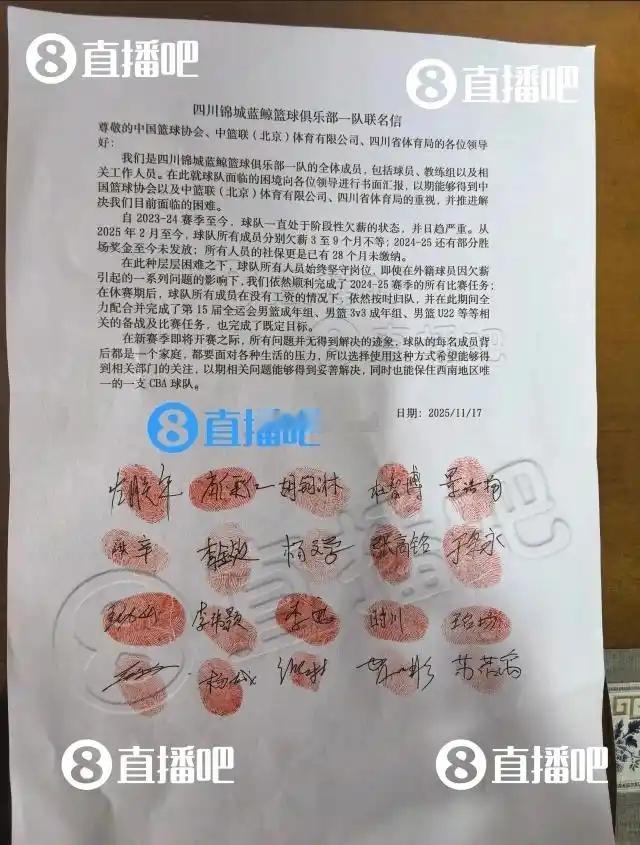 直播吧
直播吧
四川锦城蓝鲸篮球俱乐部一队联名信
尊敬的中国篮球协会、中篮联（北京）体育有限公司、四川省体育局的各位领导
好：
我们是四川锦城蓝鲸篮球俱乐部一队的全体成员，包括球员、教练组以及相
关工作人员。在此就球队面临的困境向各位领导进行书面汇报，以期能够得到中
国篮球协会以及中篮联（北京）体育有限公司、四川省体育局的重视，并推进解
决我们目前面临的困难。
自 2023-24 赛季至今，球队一直处于阶段性欠薪的状态，并日趋严重。从
2025 年 2 月至今，球队所有成员分别欠薪 3 至 9 个月不等；2024-25 还有部分胜
场奖金至今未发放；所有人员的社保更是已有 28 个月未缴纳。
在此种层层困难之下，球队所有人员始终坚守岗位，即使在外籍球员因欠薪
引起的一系列问题的影响下，我们依然顺利完成了 2024-25 赛季的所有比赛任务；
在休赛期后，球队所有成员在没有工资的情况下，依然按时归队，并在此期间全
力配合并完成了第 15 届全运会男篮成年组、男篮 3v3 成年组、男篮 U22 等等相
关的备战及比赛任务，也完成了既定目标。
在新赛季即将开赛之际，所有问题并无得到解决的迹象，球队的每名成员背
后都是一个家庭，都要面对各种生活的压力，所以选择使用这种方式希望能够得
到相关部门的关注，以期相关问题能够得到妥善解决，同时也能保住西南地区唯
一的一支 CBA 球队。
直播吧
日期：2025/11/17
杜智博 景浩杨
杨文学 张高铭
直播吧
李玮颢 李迅 时川
直播吧
直播吧